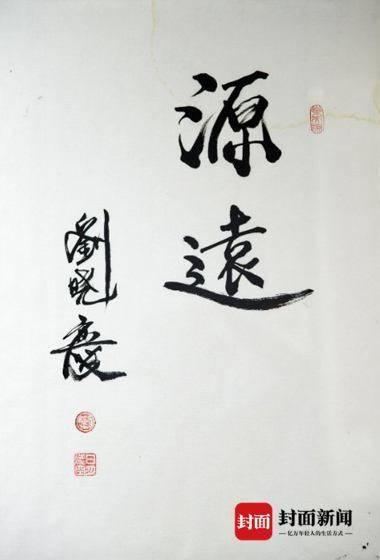 源遠
劉晓慶
封面
封面新闻
亿万年轻人的生活方式